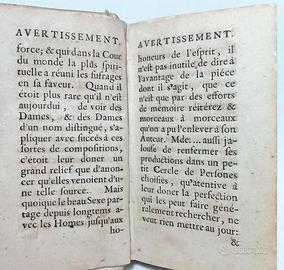 AVERTISSEMENT.
force; & qui dans la Cour
du monde la plus spiri-
tuelle a réuni les sufrages
en sa faveur. Quand il
étoit plus rare qu'il n'est
aujourdui, de voir des
Dames, & des Dames
d'un nom distingué, s'a-
pliquer avec succès à ces
sortes de compositions,
c'étoit leur donner un
grand relief que d'anon-
cer qu'elles venoient d'u-
ne telle source. Mais
quoique le beau Sexe par-
tage depuis longtems a-
vec les Homes jusqu'aux
ho-
AVERTISSEMENT.
honeurs de l'esprit, il
n'est pas inutile de dire à
l'avantage de la piéce
dont il s'agit, que ce
n'est que par des efforts
de mémoire réitérez &
morceaux à morceaux
qu'on a pu l'enlever à son
Auteur. Mde. ... aussi ja-
louse de renfermer ses
productions dans un pe-
tit Cercle de Persones
choisies, qu'attentive à
leur donner la perfection
qui les peut faire géné-
ralement rechercher, ne
veut rien mettre au jour:
&